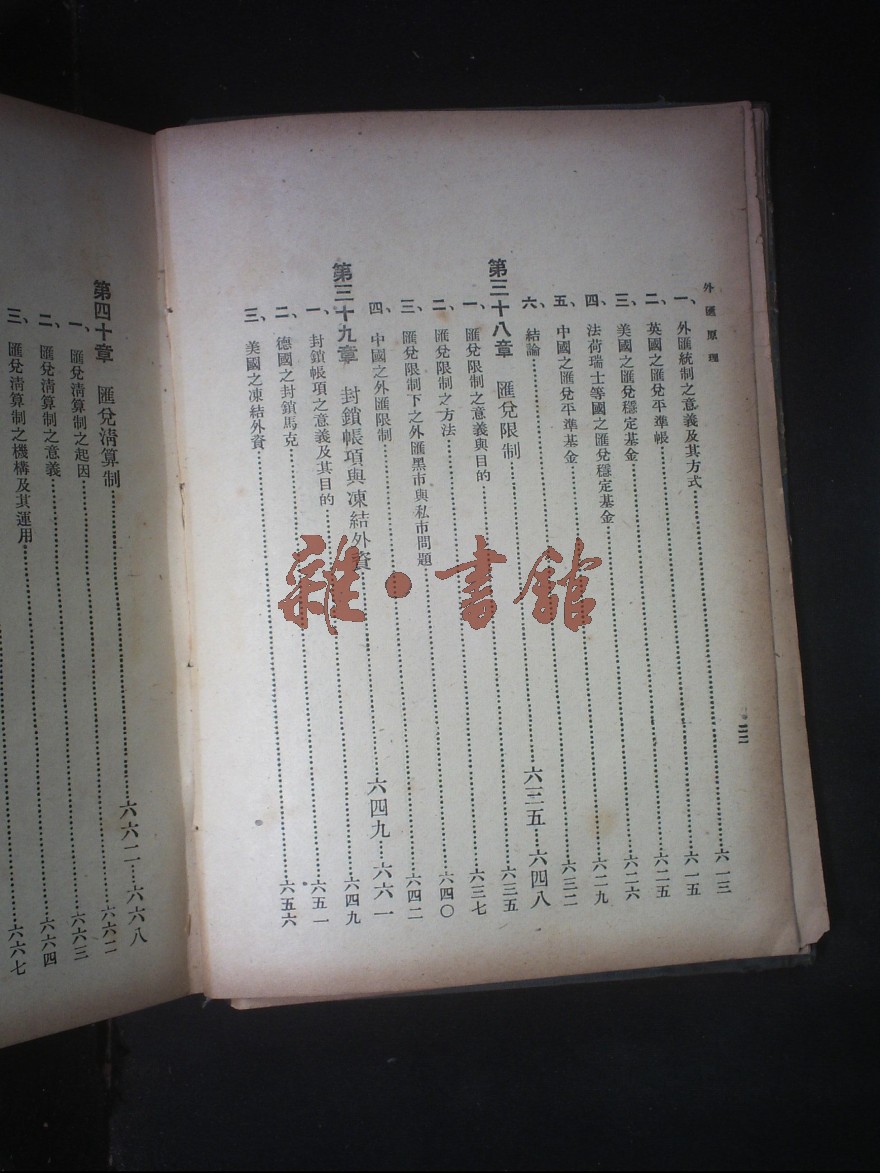 外匯原理
一、外匯統制之意義及其方式……六一三
二、英國之匯兌平準帳……六一五
三、美國之匯兌穩定基金……六二五
四、法荷瑞士等國之匯兌穩定基金……六二六
五、中國之匯兌平準基金……六二九
六、結論……六三二
第三十八章 匯兌限制……六三五—六四八
一、匯兌限制之意義與目的……六三五
二、匯兌限制之方法……六三七
三、匯兌限制下之外匯黑市與私市問題……六四〇
四、中國之外匯限制……六四二
第三十九章 封鎖帳項與凍結外資……六四九—六六一
一、封鎖帳項之意義及其目的……六四九
二、德國之封鎖馬克……六五一
三、美國之凍結外資……六五六
第四十章 匯兌清算制……六六二—六六八
一、匯兌清算制之起因……六六二
二、匯兌清算制之意義……六六三
三、匯兌清算制之機構及其運用……六六四
六六七
雜·書館